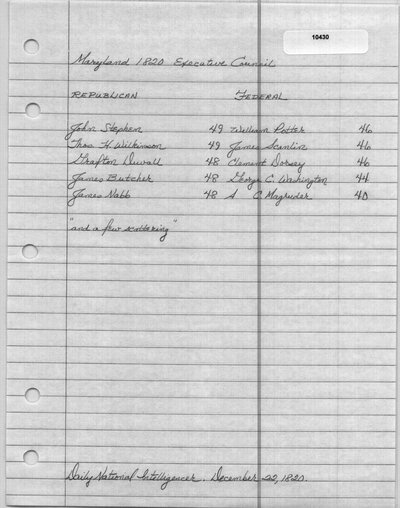 10430
Maryland 1820 Executive Council
REPUBLICAN FEDERAL
John Stephen 49 William Potter 46
Thos. H. Wilkinson 49 James Scanlin 46
Grafton Duvall 48 Clement Dorsey 46
James Butcher 48 George C. Washington 44
James Nabb 48 A C. Magruder 40
"and a few scattering"
Daily National Intelligencer. December 22, 1820.